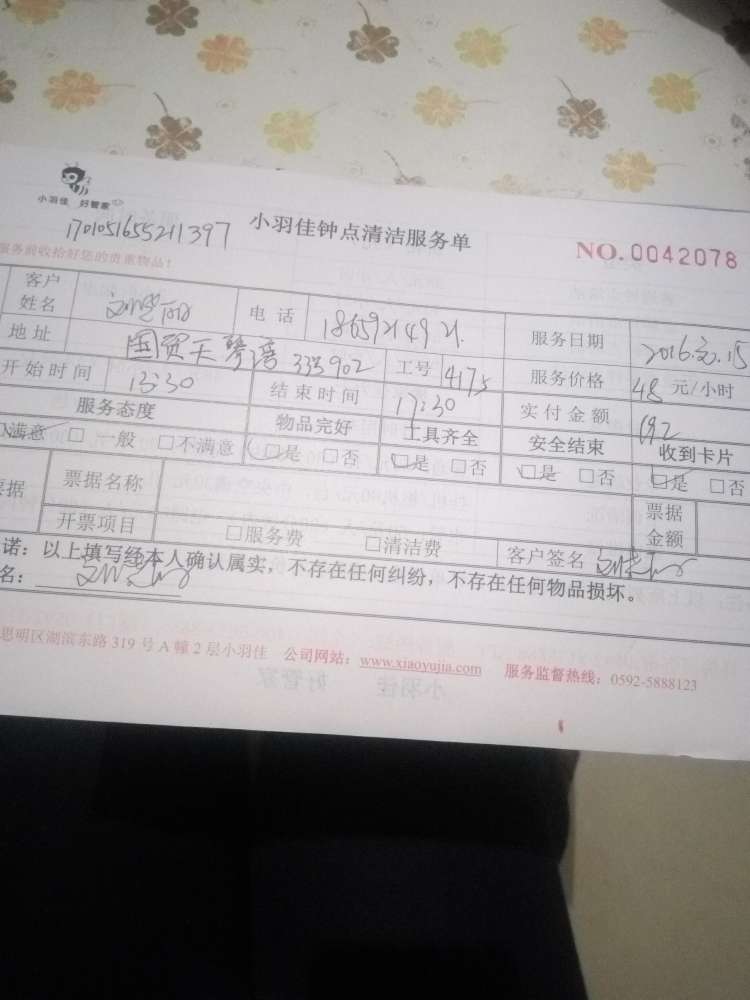 小羽佳 好管家
1701051655211397
小羽佳钟点清洁服务单
NO.0042078
服务前收拾好您的贵重物品！
客户姓名 电话 服务日期
地址 国贸天琴湾 工号 4175 服务价格 48 元/小时
开始时间 13:30 结束时间 17:30 实付金额 192
服务态度 物品完好 工具齐全 安全结束 收到卡片
满意 □一般 □不满意 □是 □否 □是 □否 □是 □否 □是 □否
票据 票据名称 票据金额
开票项目 □服务费 □清洁费 客户签名
诺：以上填写经本人确认属实，不存在任何纠纷，不存在任何物品损坏。
名：
思明区湖滨东路 319 号 A 幢 2 层小羽佳 公司网站：www.xiaoyujia.com 服务监督热线：0592-5888123